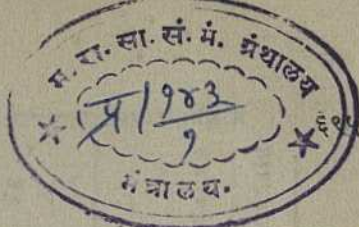 म. रा. सा. सं. मं. ग्रंथालय
प्र|१४३
१
मंत्रालय.